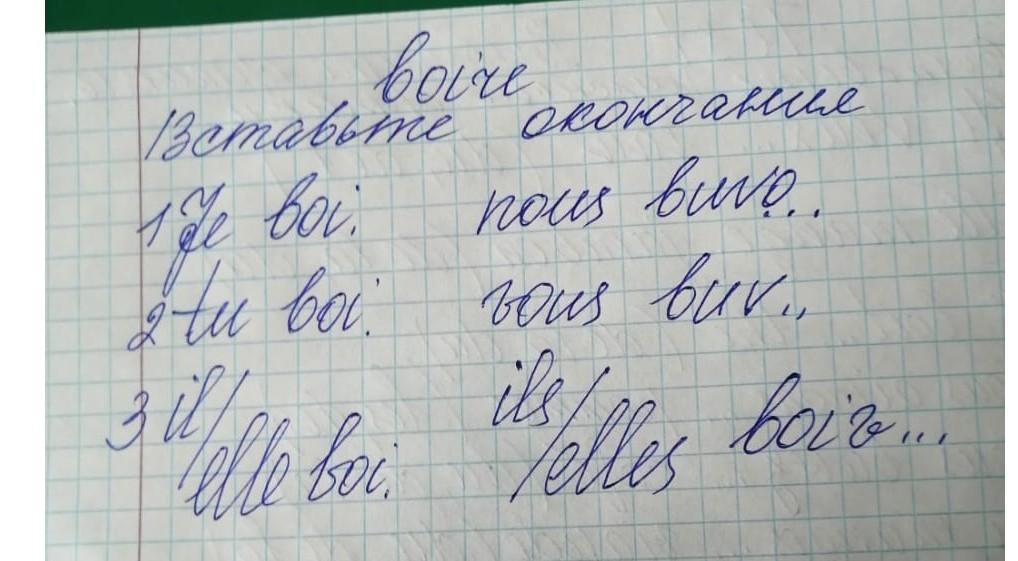 boire
Вставьте окончания
1 Je boi. nous buvo...
2 tu boi. vous buv...
3 il/elle boi. ils/elles boiv...